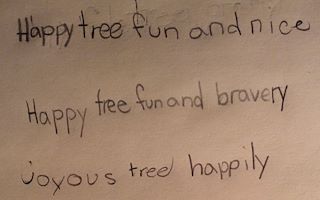 Happy tree fun and nice
Happy tree fun and bravery
Joyous tree happily